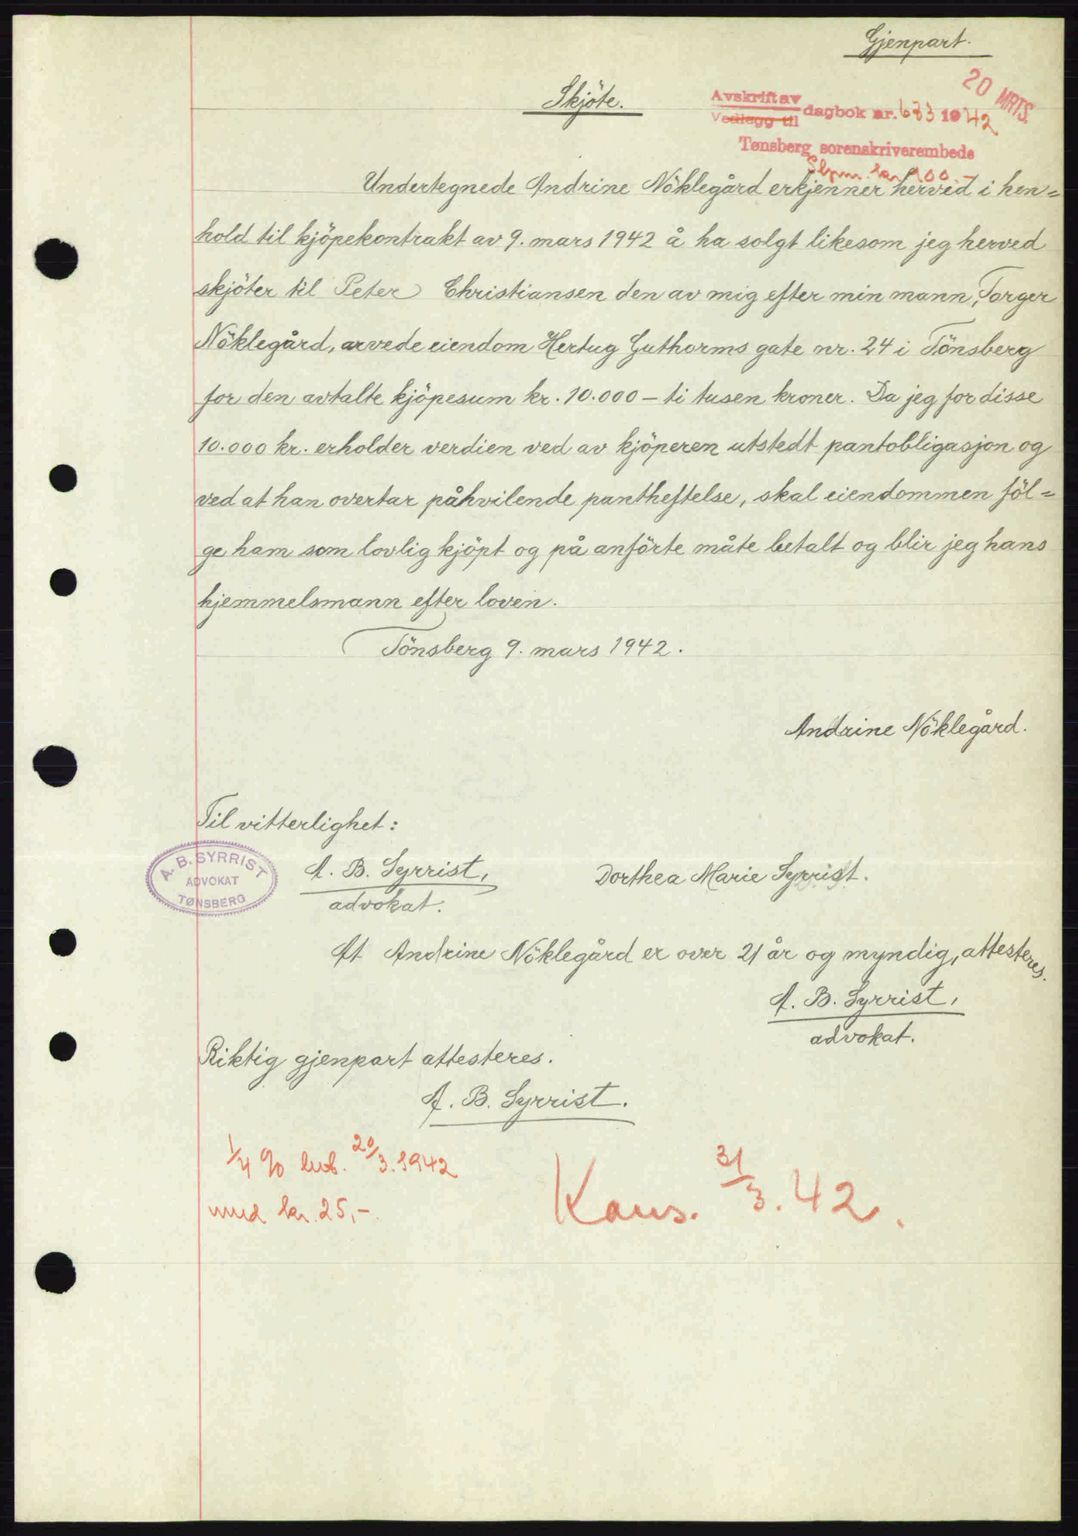 Gjenpart.
20 MRTS.
Skjöte.
Avskrift av
Vedlegg til
dagbok nr. 683 1942
Tønsberg sorenskriverembede
Stpm. kr. 100.-
Undertegnede Andrine Nöklegård erkjenner herved i hen=
hold til kjöpekontrakt av 9. mars 1942 å ha solgt likesom jeg herved
skjöter til Peter Christiansen den av mig efter min mann, Torger
Nöklegård, arvede eiendom Hertug Guthorms gate nr. 24 i Tönsberg
for den avtalte kjöpesum kr. 10.000 – ti tusen kroner. Da jeg for disse
10.000 kr. erholder verdien ved av kjöperen utstedt pantobligasjon og
ved at han overtar påhvilende pantheftelse, skal eiendommen föl=
ge ham som lovlig kjöpt og på anförte måte betalt og blir jeg hans
hjemmelsmann efter loven.
Tönsberg 9. mars 1942.
Andrine Nöklegård.
Til vitterlighet:
A. B. SYRRIST
ADVOKAT
TØNSBERG
A. B. Syrrist,
advokat.
Dorthea Marie Syrrist.
At Andrine Nöklegård er over 21 år og myndig, attesteres.
A. B. Syrrist,
advokat.
Riktig gjenpart attesteres.
A. B. Syrrist.
1/4 % 20/3. 1942
med kr. 25,-.
31/3. 42.